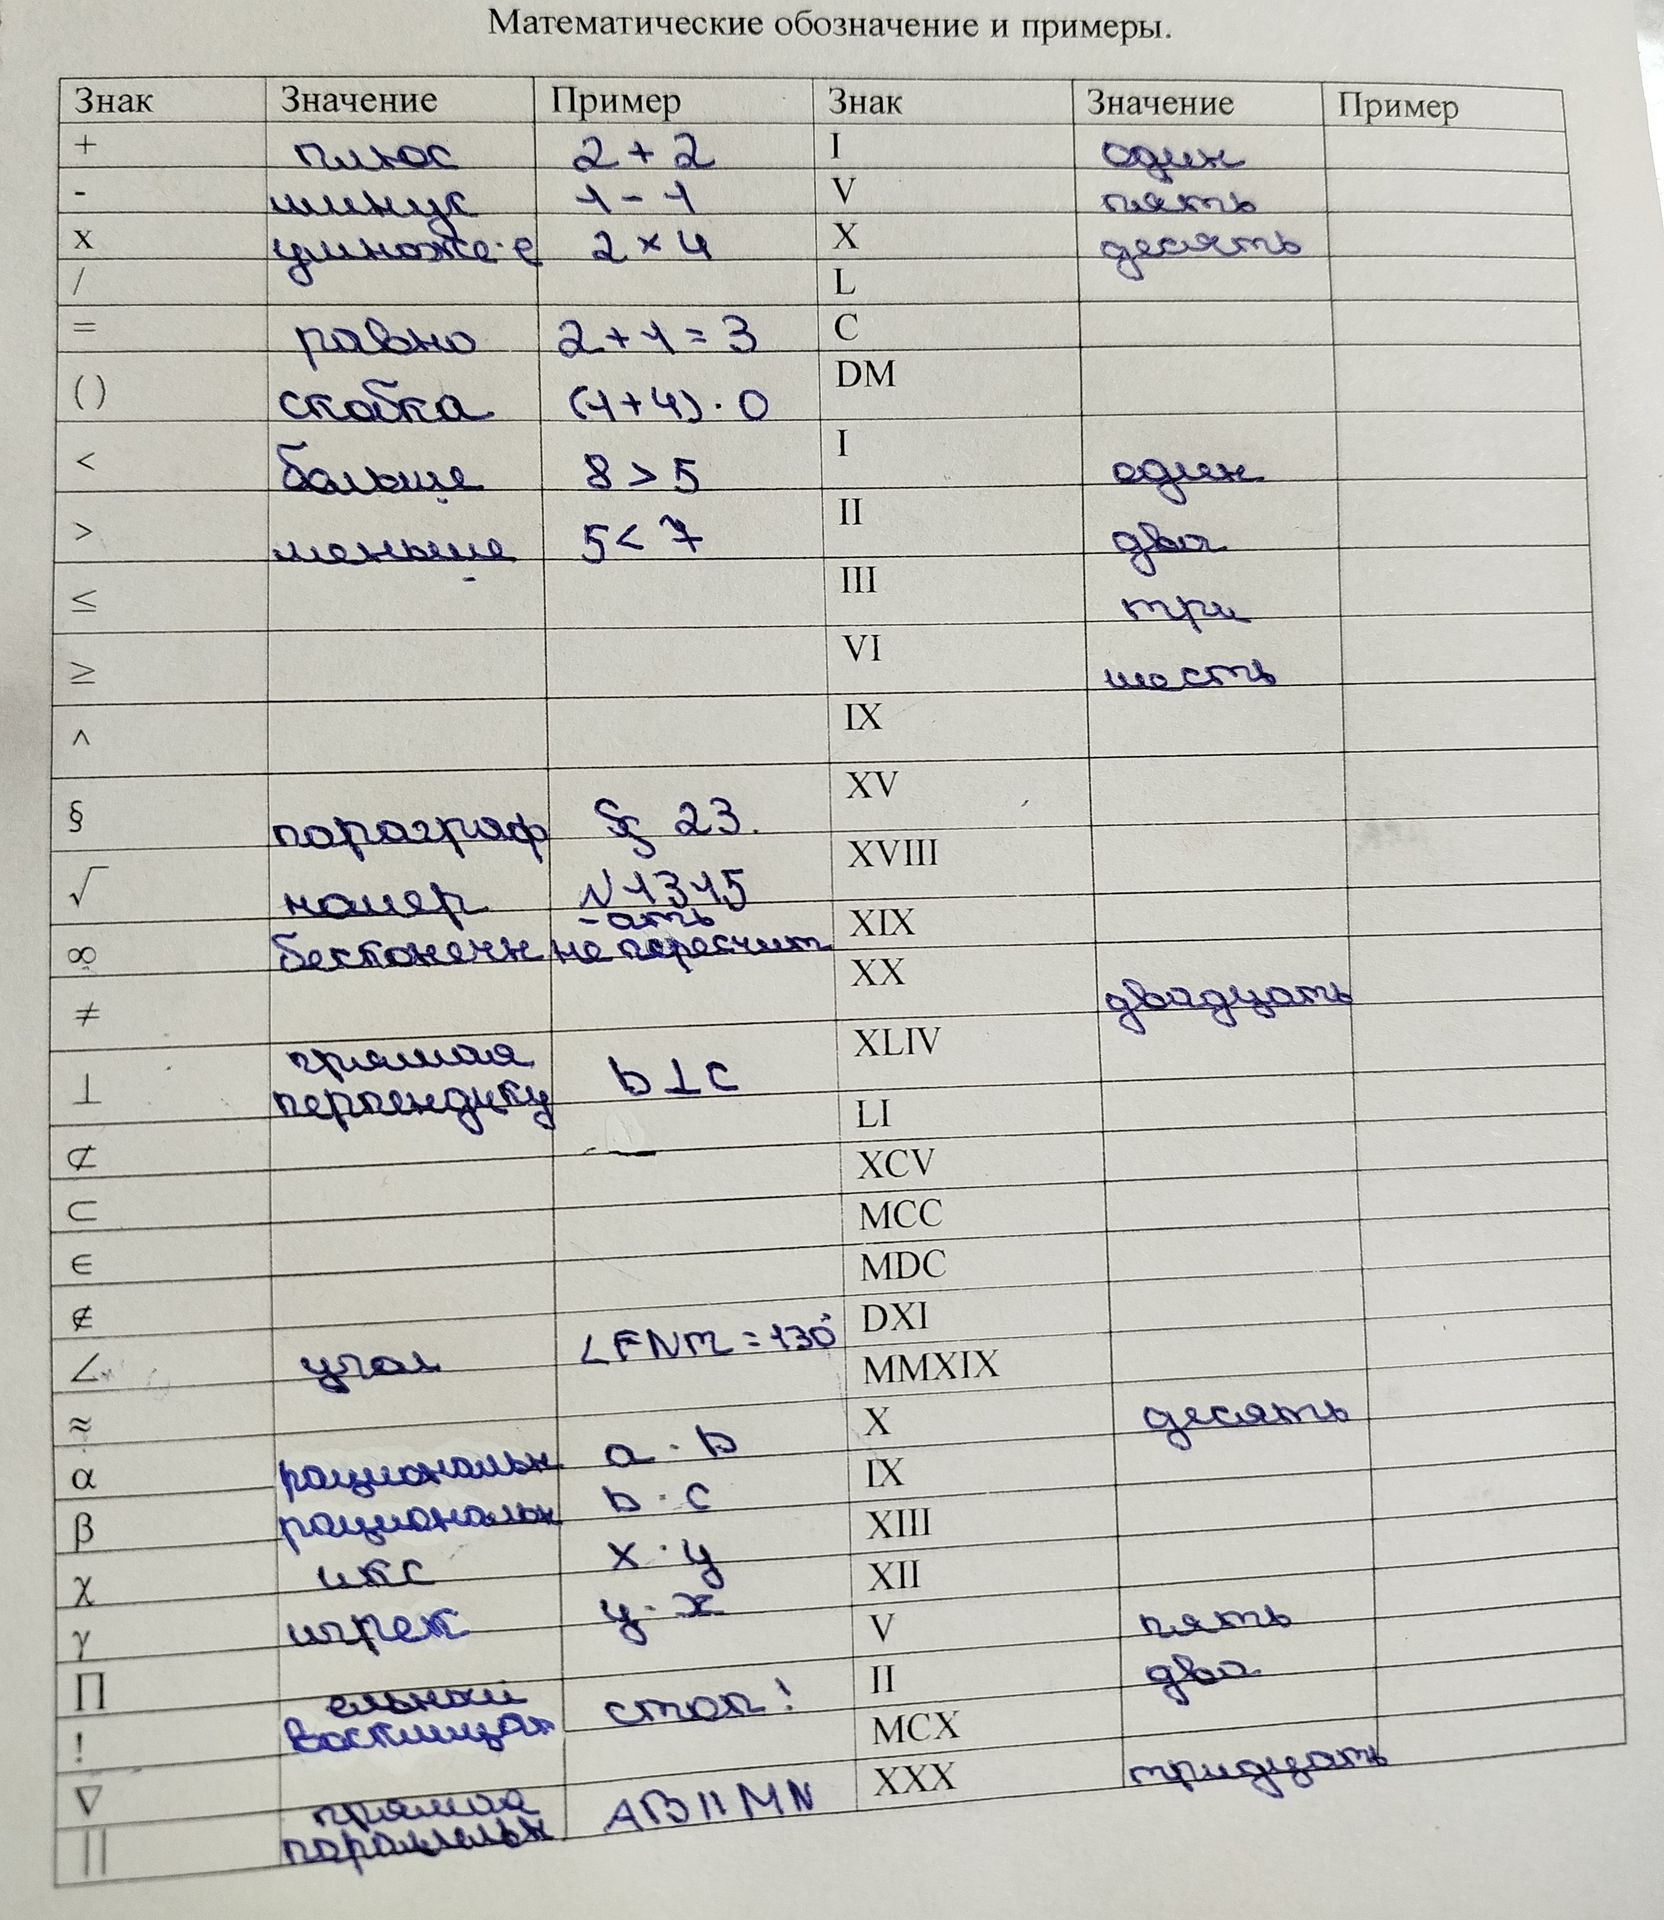 Математические обозначение и примеры.
Знак Значение Пример Знак Значение Пример
+ плюс 2 + 2 I один
- минус 1 - 1 V пять
x умноже-е 2 × 4 X десять
/ L
= равно 2 + 1 = 3 C
( ) скобка (1+4) · 0 DM
< больше 8 > 5 I один
> меньше 5 < 7 II два
≤ III три
≥ VI шесть
^ IX
§ параграф § 23. XV
√ номер №1315 XVIII
∞ бесконечн не пересчит -ать XIX
≠ XX двадцать
⊥ прямая перпендику b ⊥ c XLIV
LI
⊄ XCV
⊂ MCC
∈ MDC
∉ DXI
∠ угол ∠FNM = 130° MMXIX
≈ X десять
α рациональн a · b IX
β рациональн b · c XIII
χ икс x · y XII
γ игрек y · x V пять
П II два
! восклицат ельный стоп! MCX
∇ XXX тридцать
|| прямая параллельн AB || MN